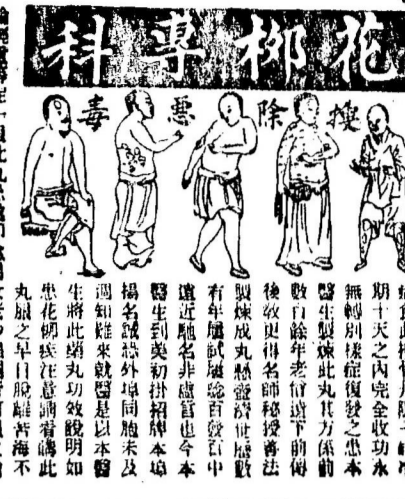 花柳專科
搜除惡毒
期十天之內完全收功永
無轉別樣症復發之患本
醫生製煉此丸其方係前
數百餘年老僧遺下的傳
後致更得名師秘授善法
製煉成丸懸壺濟世歷數
有年屢試屢驗百發百中
遠近馳名非虛言也今本
醫生到美初掛招牌本埠
揚名誠恐外埠同胞未及
週知難來就醫是以本醫
生將此藥丸功效說明如
患花柳疾注意請看購此
丸服之早日脫離苦海不